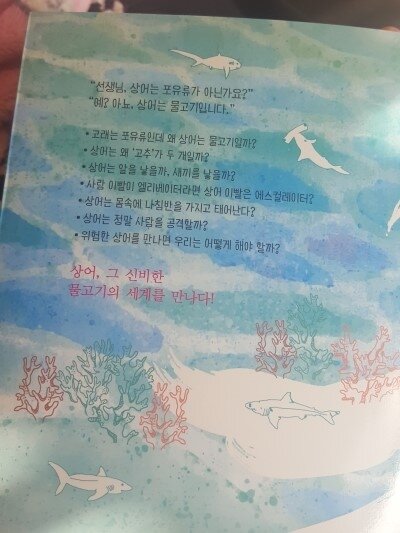 "선생님, 상어는 포유류가 아닌가요?"
"예? 아뇨, 상어는 물고기입니다."
• 고래는 포유류인데 왜 상어는 물고기일까?
• 상어는 왜 '고추'가 두 개일까?
• 상어는 알을 낳을까, 새끼를 낳을까?
• 사람 이빨이 엘리베이터라면 상어 이빨은 에스컬레이터?
• 상어는 몸속에 나침반을 가지고 태어난다?
• 상어는 정말 사람을 공격할까?
• 위험한 상어를 만나면 우리는 어떻게 해야 할까?
상어, 그 신비한
물고기의 세계를 만나다!